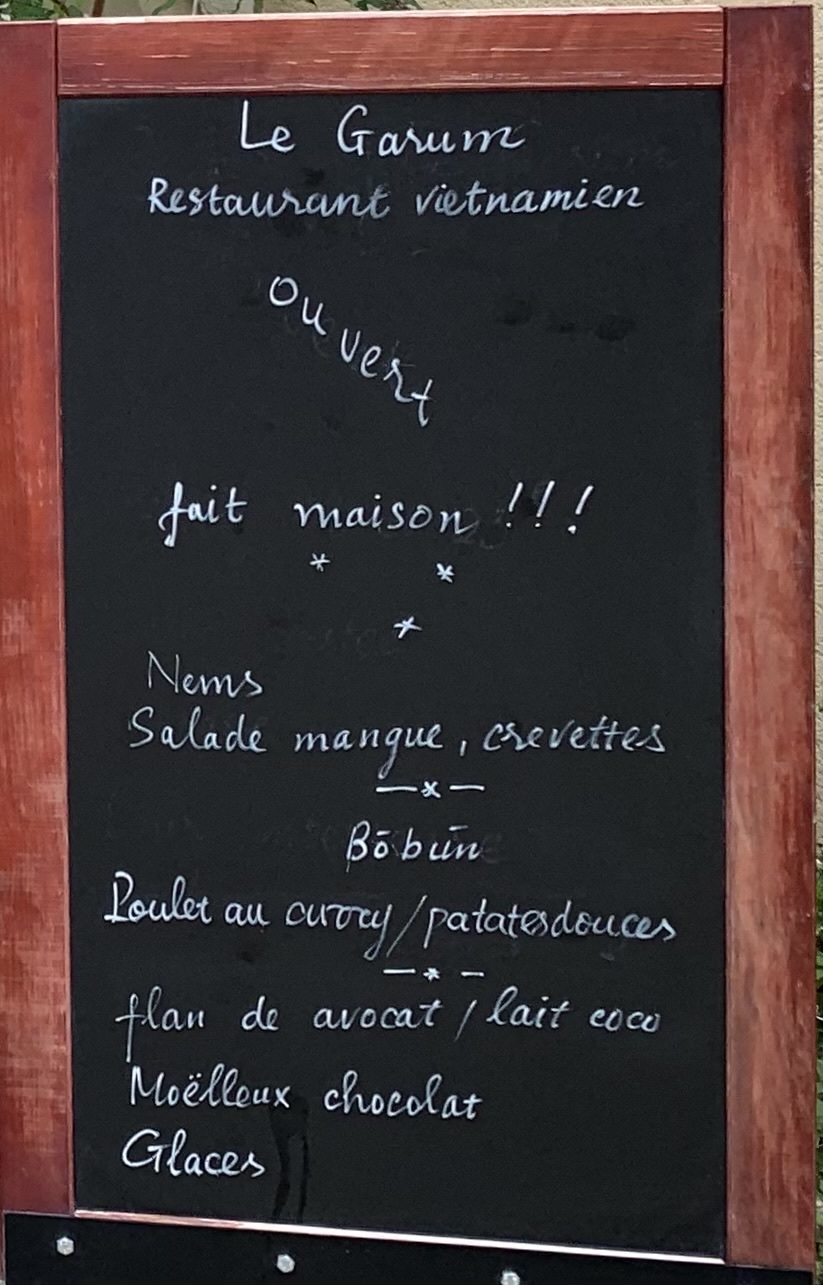 Le Garum
Restaurant vietnamien
ouvert
fait maison !!!
* *
*
Nems
Salade mangue, crevettes
—*—
Bōbūn
Poulet au curry/patates douces
—*—
flan de avocat / lait coco
Moëlleux chocolat
Glaces